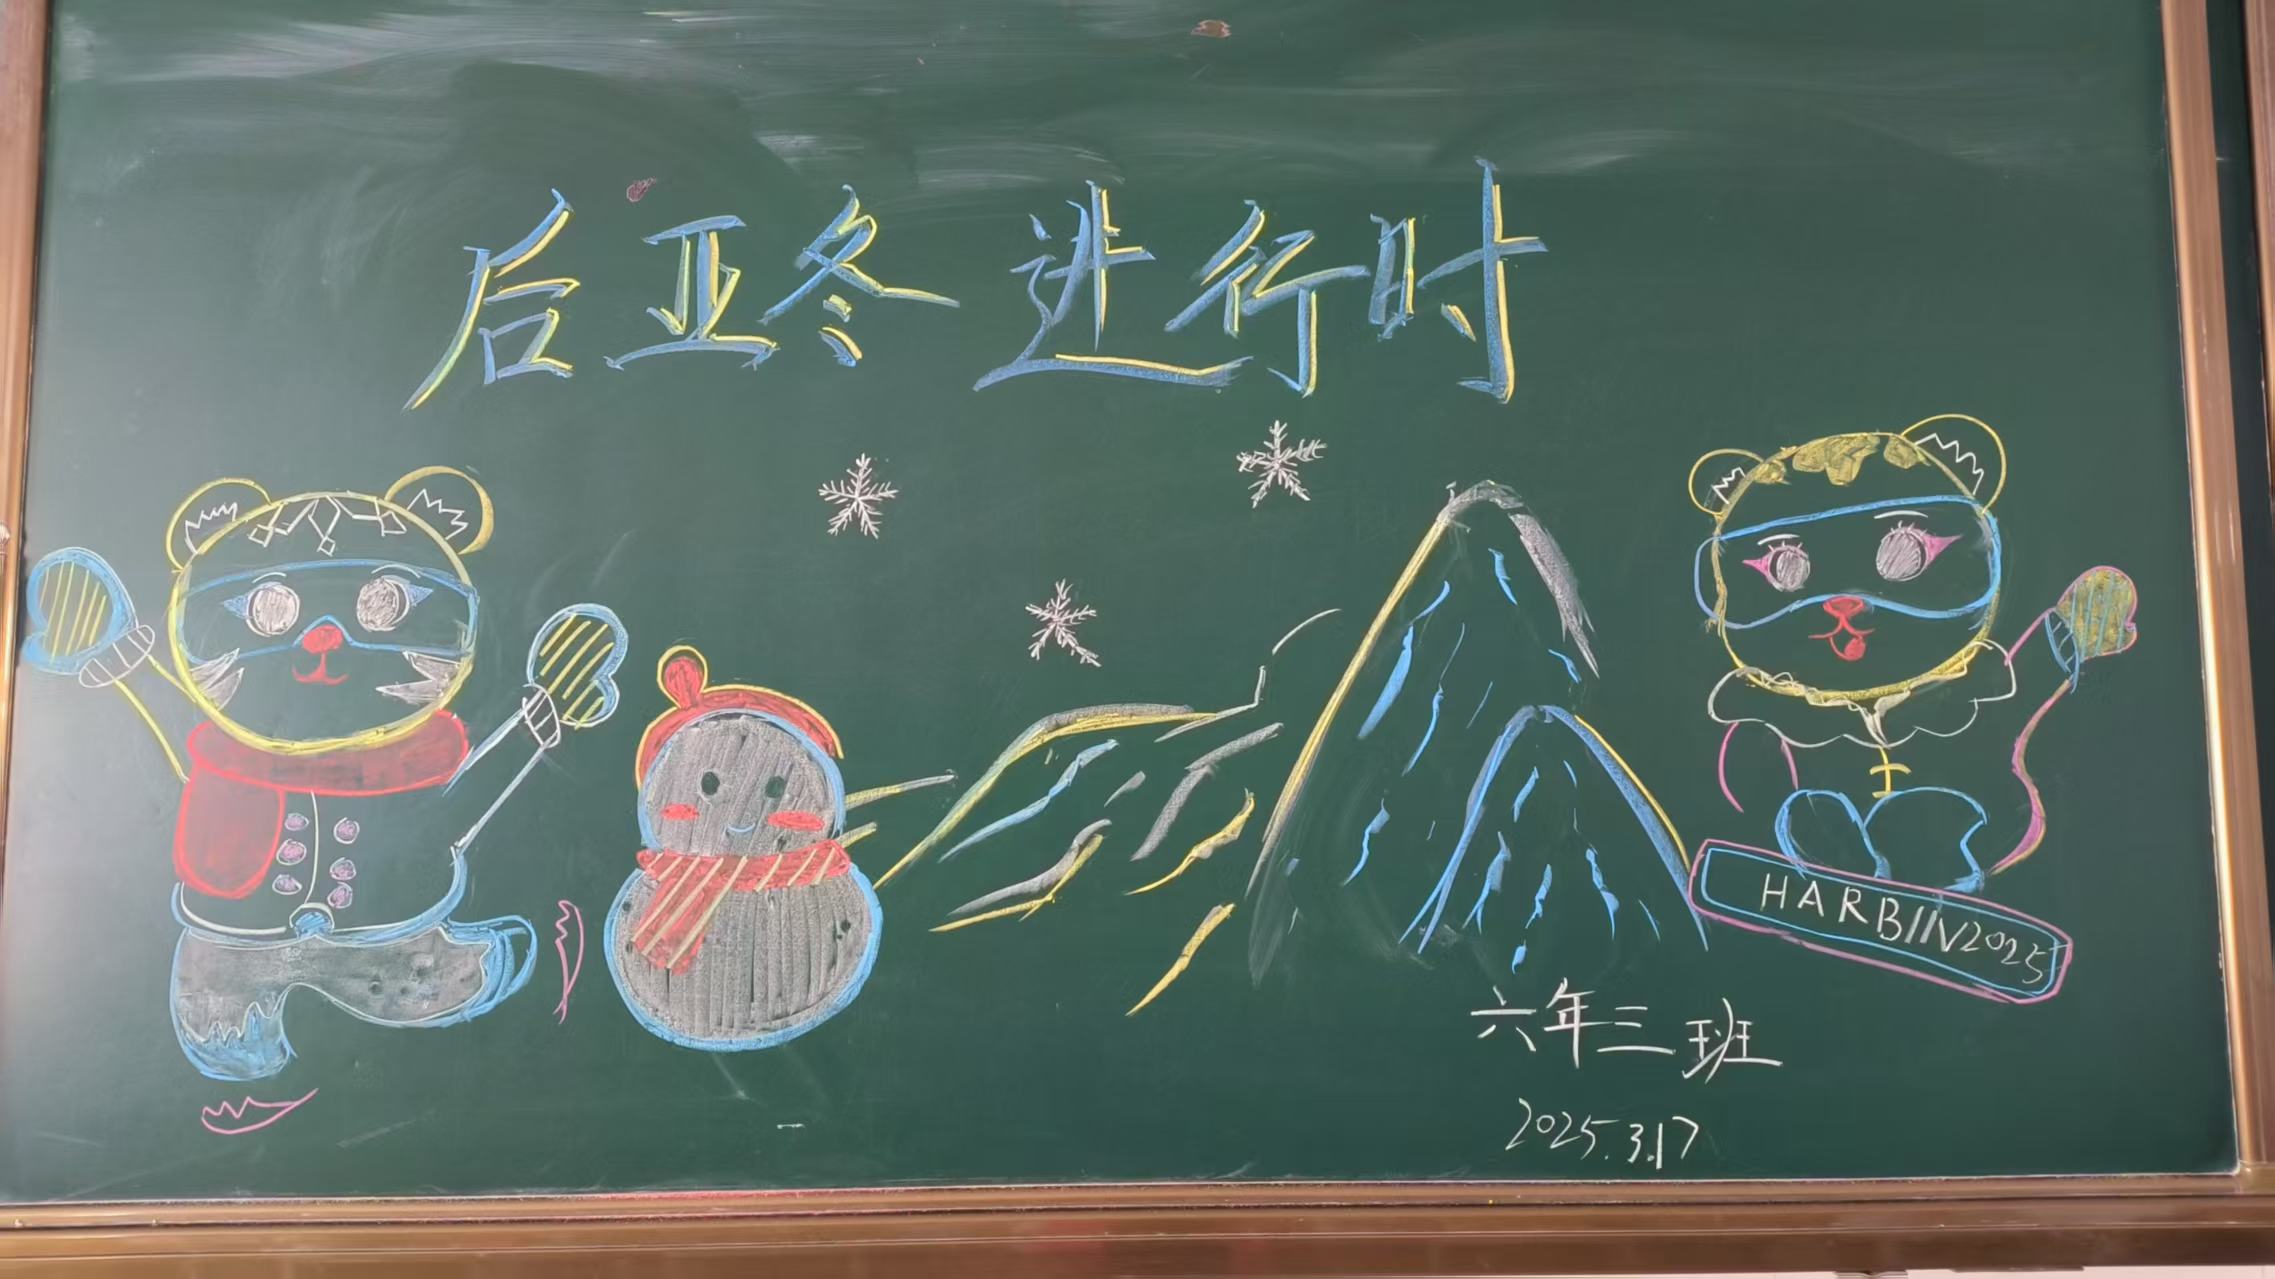 后亚冬进行时
HARBIN2025
六年三班
2025.3.17